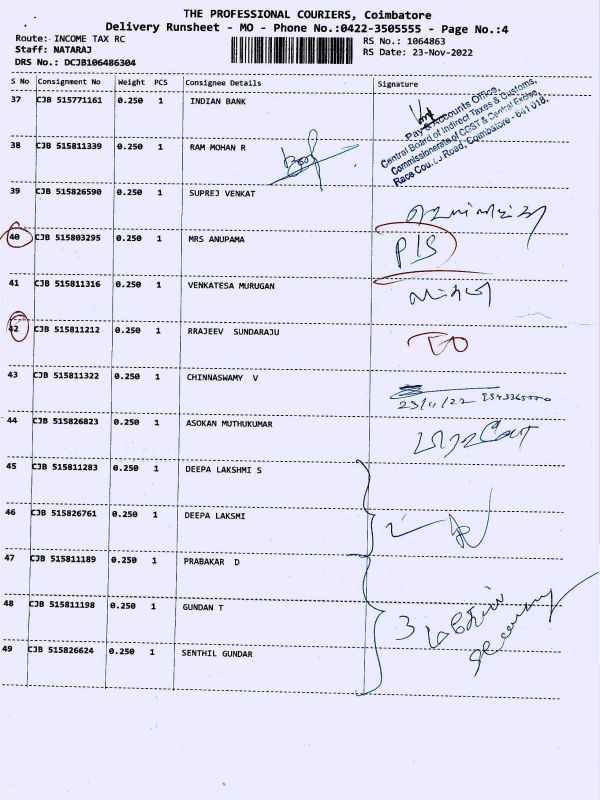 THE PROFESSIONAL COURIERS, Coimbatore
Delivery Runsheet - MO - Phone No.:0422-3505555 - Page No.:4
Route: INCOME TAX RC
RS No.: 1064863
Staff: NATARAJ
RS Date: 23-Nov-2022
DRS No.: DCJB106486304
S No Consignment No Weight PCS Consignee Details Signature
37 CJB 515771161 0.250 1 INDIAN BANK
Pay & Accounts Office,
Central Board of Indirect Taxes & Customs,
Commissionerate of CGST & Central Excise,
Race Course Road, Coimbatore - 641 018.
38 CJB 515811339 0.250 1 RAM MOHAN R
39 CJB 515826590 0.250 1 SUPREJ VENKAT
40 CJB 515803295 0.250 1 MRS ANUPAMA P/S
41 CJB 515811316 0.250 1 VENKATESA MURUGAN
42 CJB 515811212 0.250 1 RRAJEEV SUNDARAJU
43 CJB 515811322 0.250 1 CHINNASWAMY V
23/11/22
44 CJB 515826823 0.250 1 ASOKAN MUTHUKUMAR
45 CJB 515811283 0.250 1 DEEPA LAKSHMI S
46 CJB 515826761 0.250 1 DEEPA LAKSMI
47 CJB 515811189 0.250 1 PRABAKAR D
48 CJB 515811198 0.250 1 GUNDAN T
3
49 CJB 515826624 0.250 1 SENTHIL GUNDAR